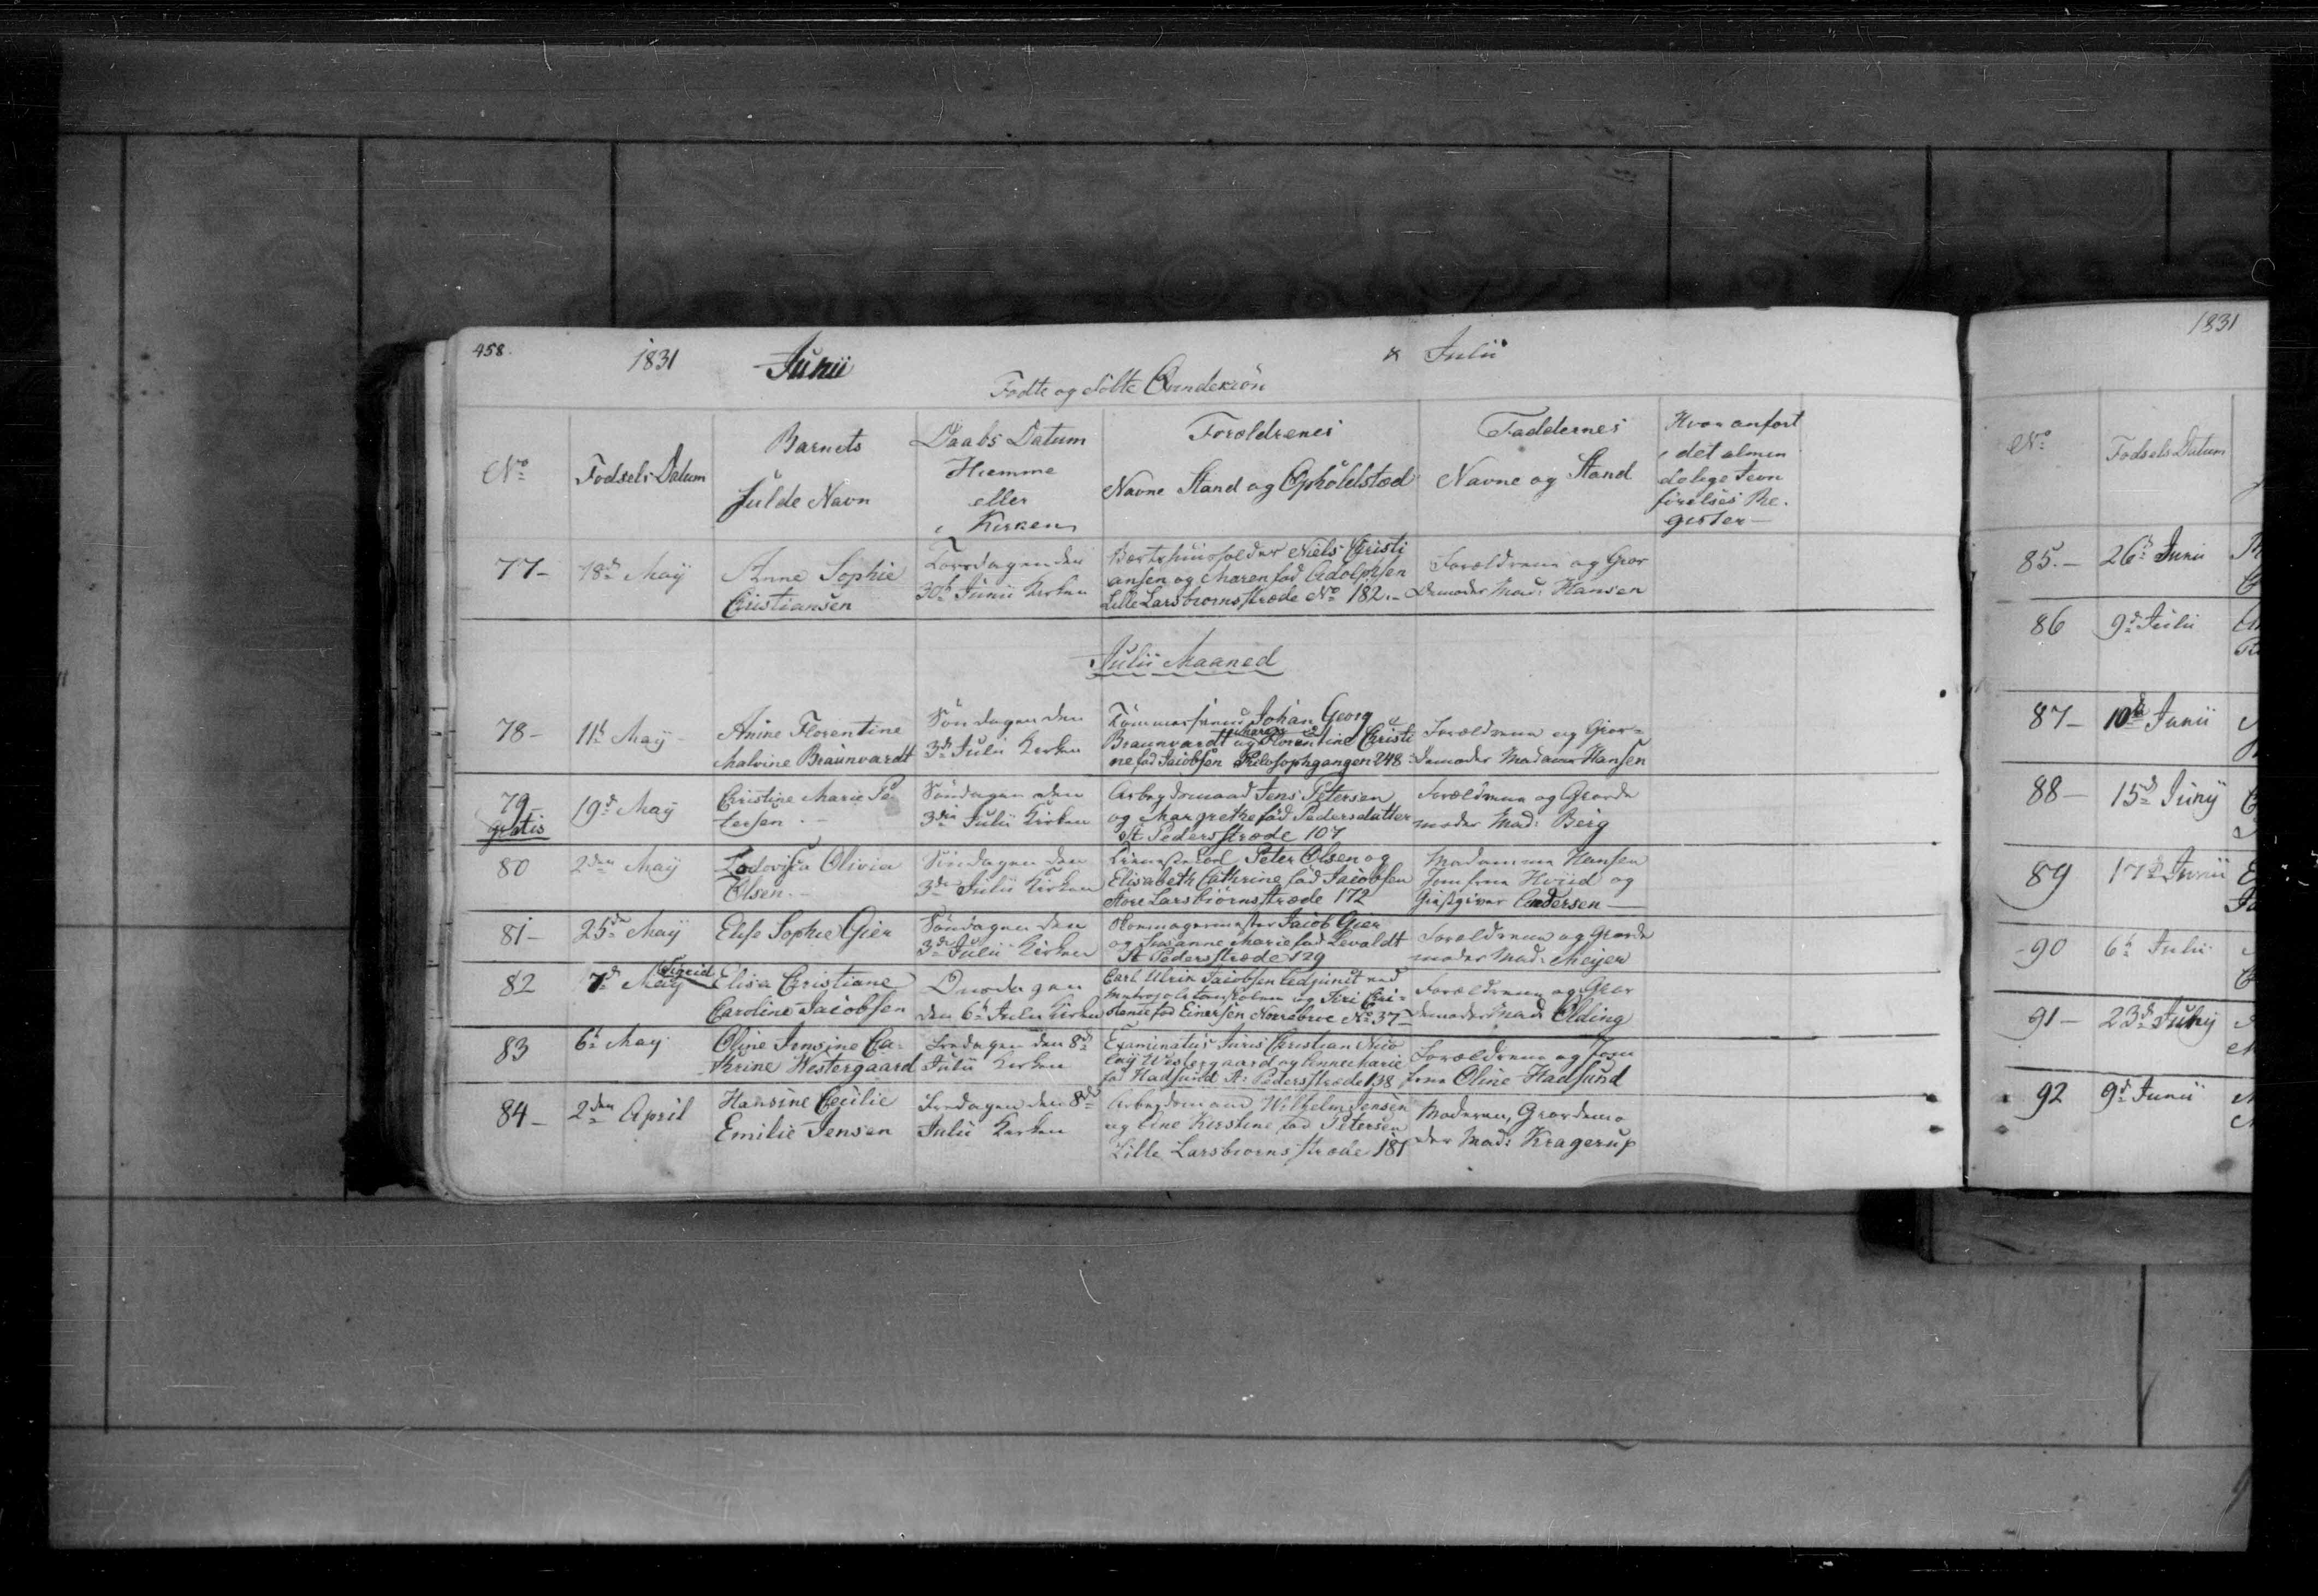 458.
1831 Junii & Julii
Fødte og døbte Qvindekiøn
No Fødsels Datum
Barnets
fulde Navn
Daabs Datum
Hiemme
eller
i Kirken
Forældrenes
Navne Stand og Opholdsted
Faddernes
Navne og Stand
Hvor anført
i det almin
delige Jevn
førelses Re-
gister
77- 18de Maÿ
Anne Sophie
Christiansen
Torsdagen den
30te Junii Kirken
Værtshuusholder Niels Christi
ansen og Maren fød Adolphsen
Lille Larsbiørnsstræde No 182.-
Forældrene og Gior
demoder Mad: Hansen
Julii Maaned
78- 11te Maÿ
Anine Florentine
Malvine Braunvardt
Søndagen den
3die Julii Kirken
Tømmersvend Johan Georg
Braunvardt og Maren Florentine Christi
ne fød Jacobsen Philosophgangen 248
Forældrene og Gior=
demoder Madame Hansen
79 gratis 19de Maÿ
Christine Marie Pe
tersen.-
Søndagen den
3die Julii Kirken
Arbeydsmand Jens Petersen
og Margrethe fød Pedersdatter
St. Pedersstræde 107
Forældrene og Giorde
moder Mad: Berg
80 2den Maÿ
Lodovisa Olivia
Olsen.-
Søndagen den
3die Julii Kirken
Peter Olsen og
Elisabeth Cathrine fød Jacobsen
Store Larsbiørnsstræde 172
Madamme Hansen
Jomfrue Hviid og
Andersen
81- 25de Maÿ
Elise Sophie Gier
Søndagen den
3die Julii Kirken
Skomagermester Jacob Gier
og Susanne Marie fød Levaldt
St Pedersstræde 129
Forældrene og Giorde
moder Mad: Meÿer
82 7de Maÿ
Sigrid Elisa Christiane
Caroline Jacobsen
Onsdagen
den 6te Julii Kirken
Carl Ulrik Jacobsen Adjunct ved
Metropolitanskolen og Siri Chri=
stence fød Einersen Nørrebroe No 37
Forældrene og Gior
demoder Mad: Olding
83 6te May
Oline Jensine Ca-
thrine Westergaard
Fredagen den 8de
Julii Kirken
Examinatus Juris Christian Nico
laÿ Westergaard og Anne Marie
fød Hadsund St: Pedersstræde 138
Forældrene og Jom
frue Oline Hadsund
84- 2den April
Hansine Cecilie
Emilie Jensen
Fredagen den 8de
Julii Kirken
Arbeydsmand Wilhelm Jensen
og Ane Kirstine fød Petersen
Lille Larsbiørnsstræde 181
Moderen, Giordemo
der Mad: Kragerup
1831
No Fødsels Datum
85.- 26de Junii
86 9de Julii
87- 10de Junii
88- 15de Junÿ
89 17de Junii
90 6te Julii
91- 23de Junÿ
92 9de Junii